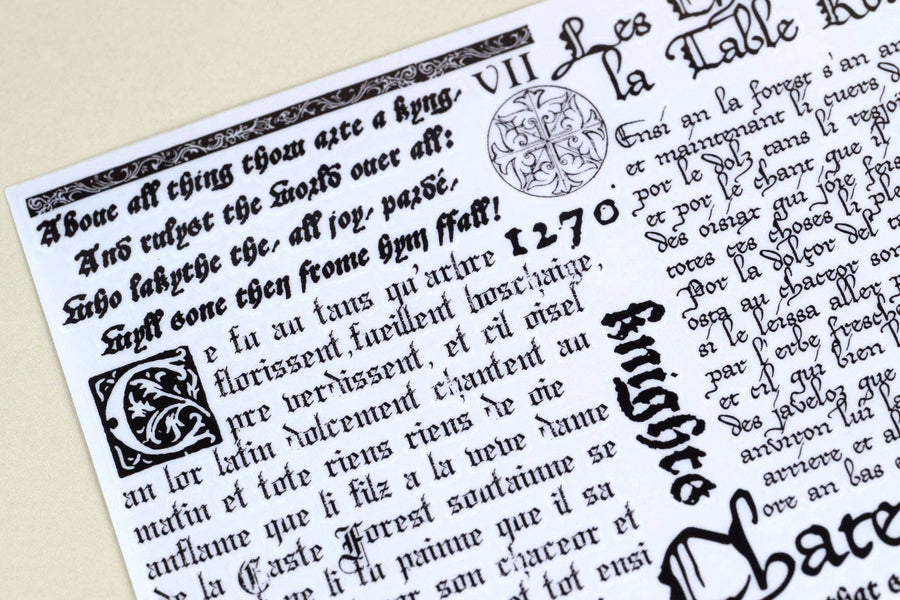 Aboue all thing thow arte a kyng,
And rulyst the world ouer all:
Who lakythe the, all joy, pardé,
Wyll sone then frome hym ffall!
1270
Ce fu au tans qu'arbre
florissent, fueillent boschaige,
pre verdissent, et cil oisel
an lor latin dolcement chantent au
matin et tote riens riens de vie
anflame que li filz a la veve dame
de la Gaste Forest soutainne se
ne li fu painne que il sa
son chaceor et
et tot ensi
knights
VII
Les
la Table
Ensi an la forest s'an
et maintenant li cuers
por le dolz tans li
et por le chant que il
des oisiax qui joie
totes ces choses li
Por la dolçor del
osta au chaceor son
si le leissa aller
par l'erbe fresch
et cil qui bien
des javeloz que
anviron lui
arriere et
ore an bas